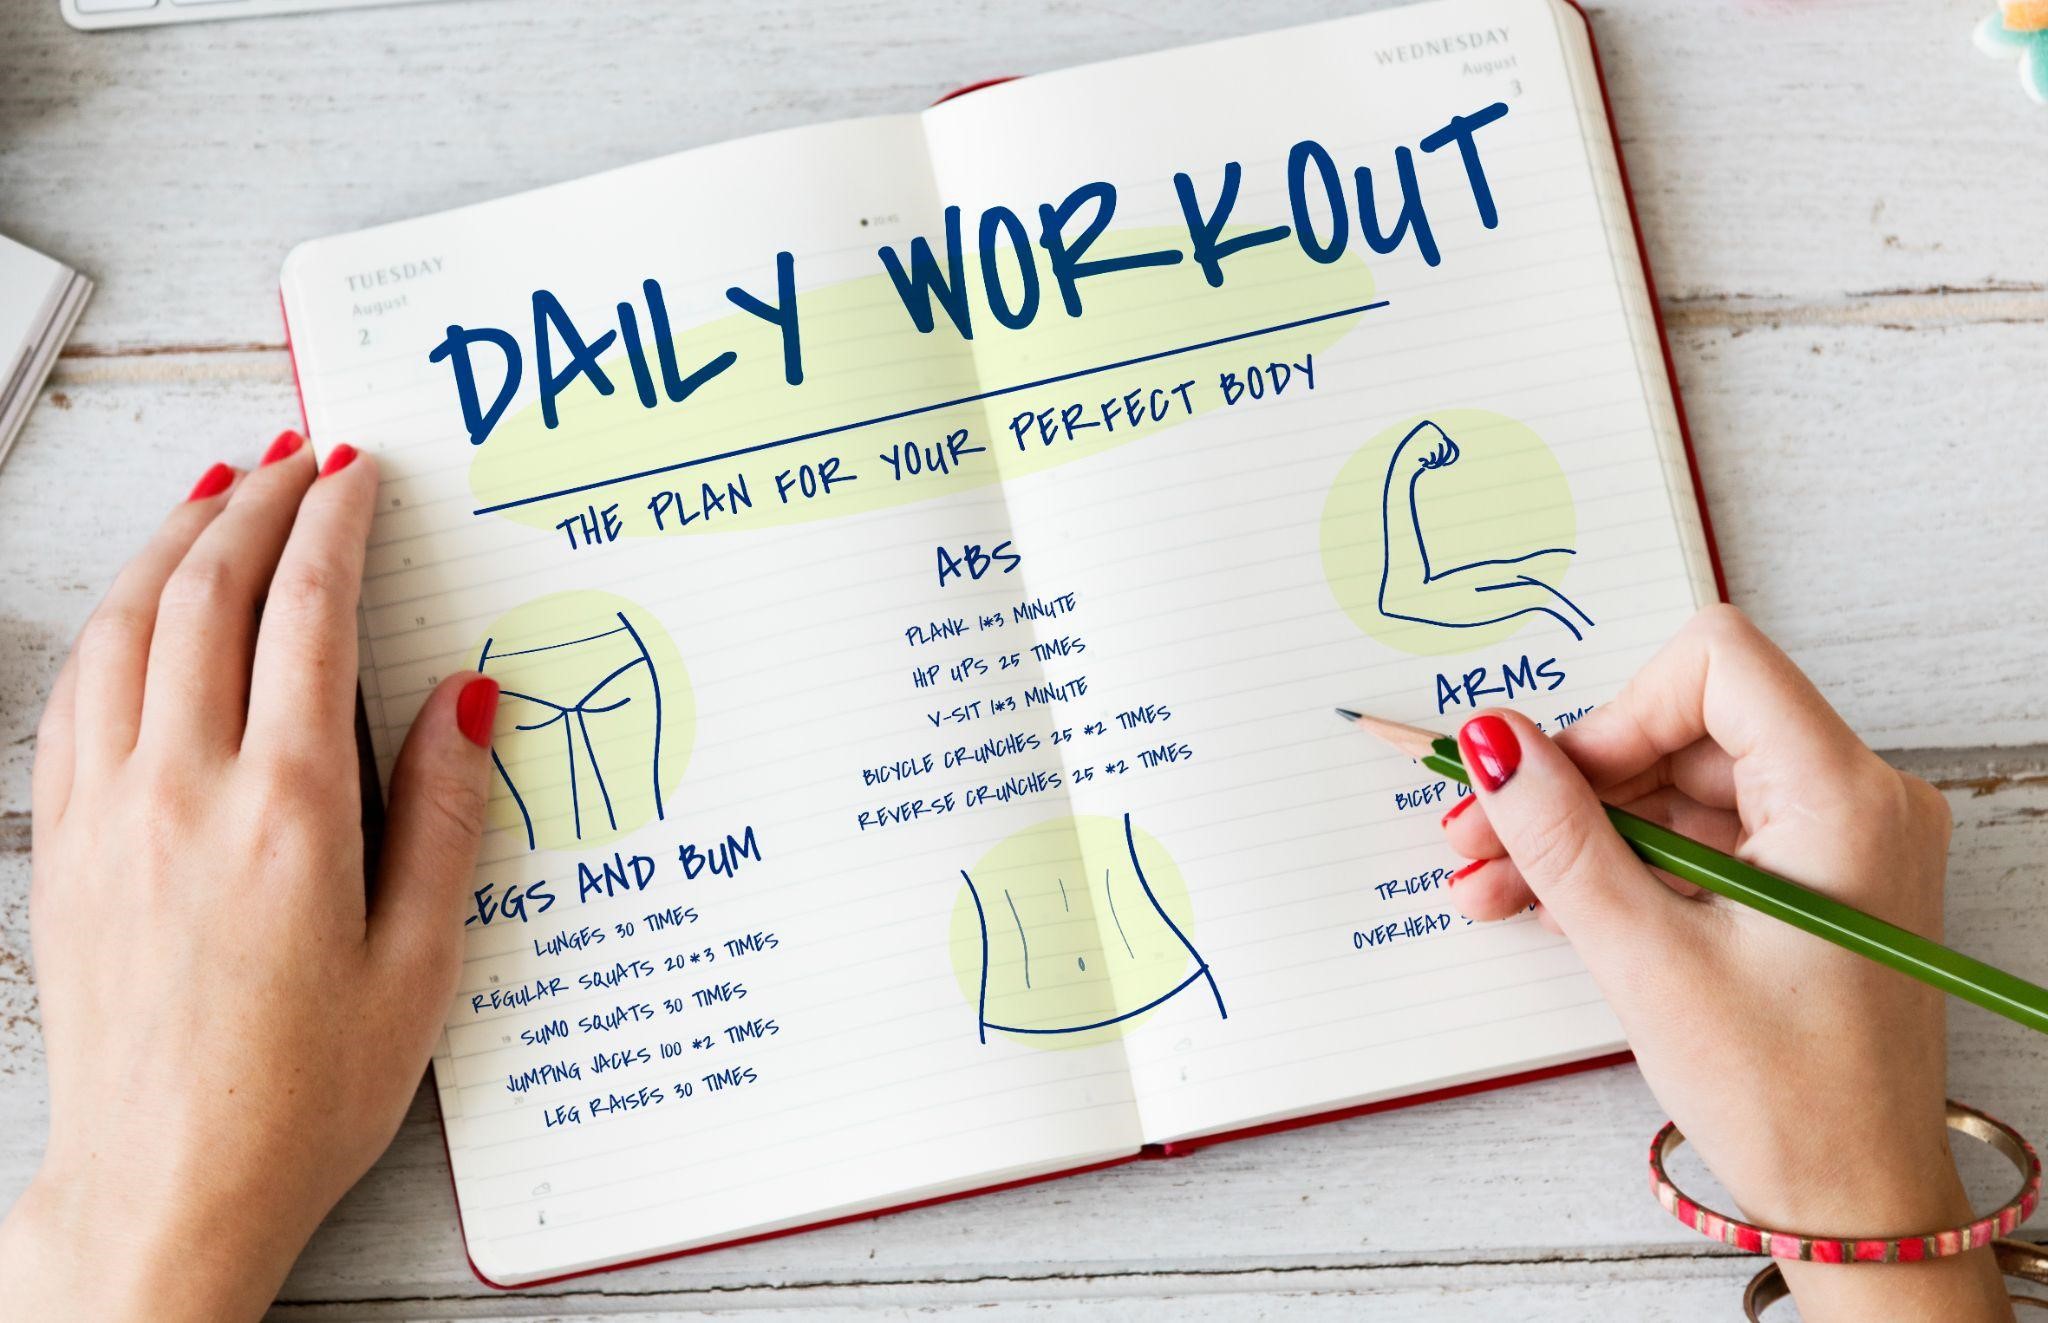 TUESDAY
August
2
WEDNESDAY
August
3
20:45
DAILY WORKOUT
THE PLAN FOR YOUR PERFECT BODY
LEGS AND BUM
LUNGES 30 TIMES
REGULAR SQUATS 20*3 TIMES
SUMO SQUATS 30 TIMES
JUMPING JACKS 100 *2 TIMES
LEG RAISES 30 TIMES
ABS
PLANK 1*3 MINUTE
HIP UPS 25 TIMES
V-SIT 1*3 MINUTE
BICYCLE CRUNCHES 25 *2 TIMES
REVERSE CRUNCHES 25 *2 TIMES
ARMS
BICEP
TRICEPS
OVERHEAD